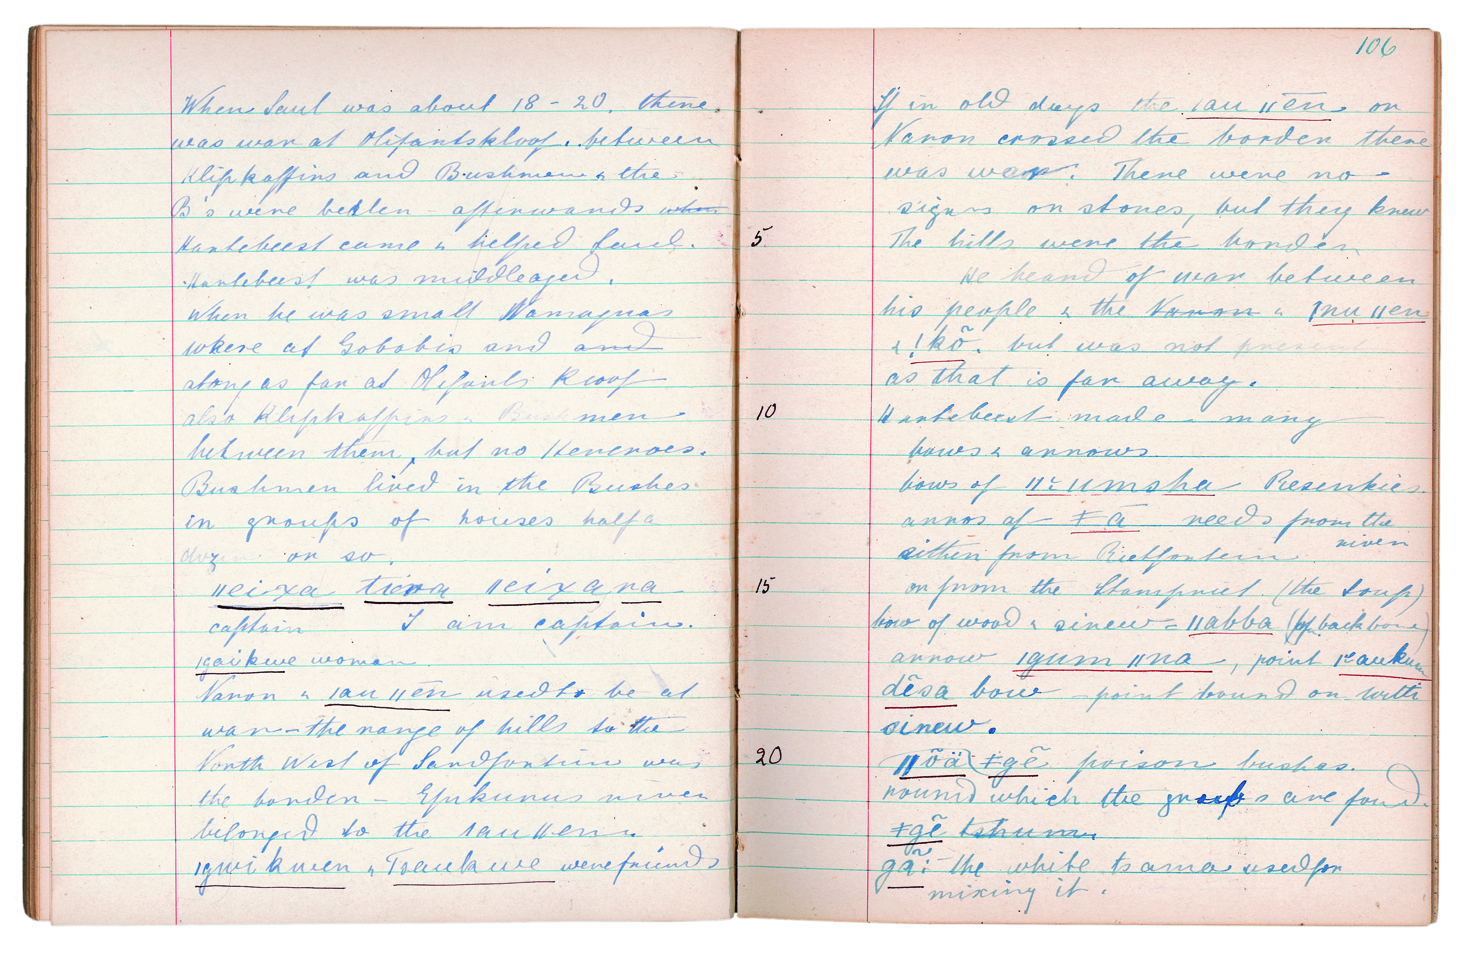 When Saul was about 18-20. there
was war at Olifantskloof. between
Klipkaffirs and Bushmen & the
B's were beaten - afterwards when
Hartebeest came & helped Saul.
Hartebeest was middleaged.
When he was small Namaquas
where at Gobabis and and
along as far as Olifants Kloof
also Klipkaffirs & Bushmen
between them, but no Hereroes.
Bushmen lived in the Bushes
in groups of houses half a
dozen or so.
ǁeixa tiera ǁeixa ra
captain I am captain.
ǀgaikwe woman
Naron & ǀau ǁēn used to be at
war - the range of hills to the
North West of Sandfontein was
the border - Epukurus river
belonged to the ǀauǁen.
ǀgwikwen & Tsaukwe were friends
106
If in old days the ǀau ǁēn or
Naron crossed the border there
was war. There were no -
signs on stones, but they knew
5
The hills were the border
He heard of war between
his people & the Naron & ǀnu ǁen
& !kõ. but was not present
as that is far away.
10
Hartebeest made many
bows & arrows
bows of umsha Resenkies.
arros of ǂā reeds from the
river
from Rietfontein
15
or from the Stampriet. (the Soup)
bow of wood & sinew = ǁabba (of backbone)
arrow ǀgum ǁna, point
dēsa bow - point bound on with
sinew.
20
ǁõä ǂgẽ poison bushes.
round which the grubs are found.
ǂgẽ tshum.
gã: the white tsama used for
mixing it.